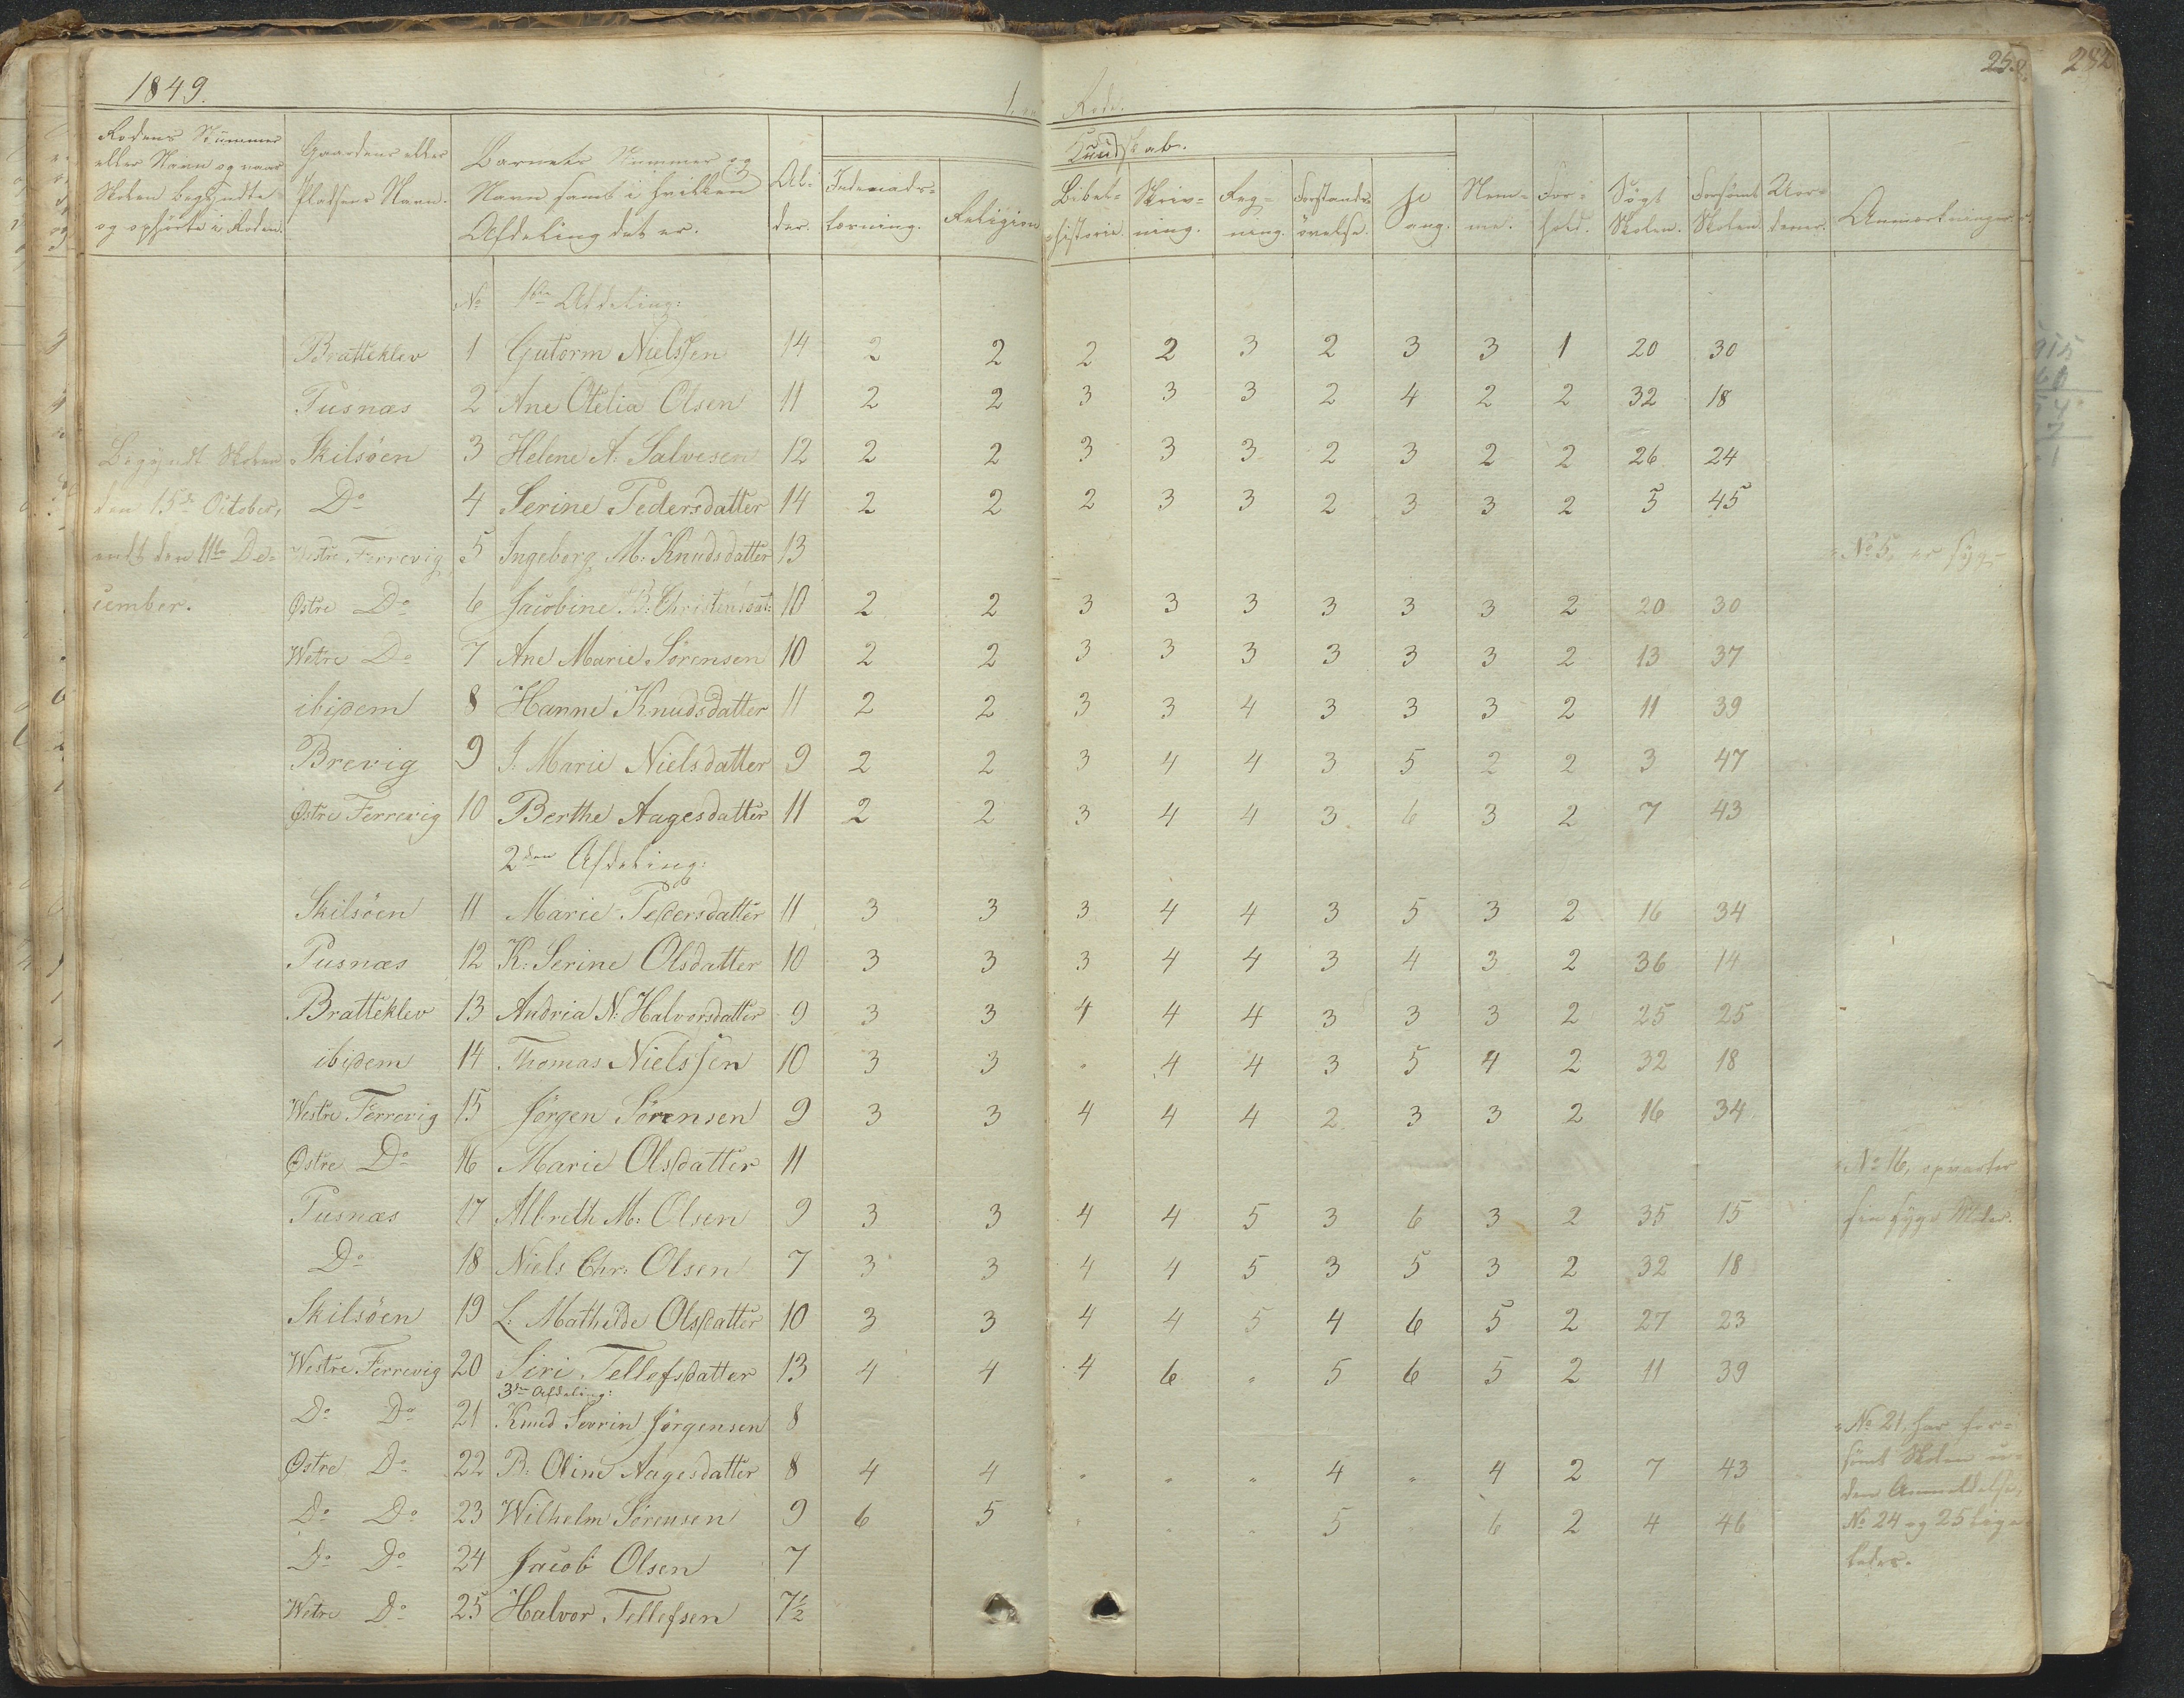 1849.
1ste Rode.
252
282
Rodens Nummer eller Navn og naar Skolen begyndte og ophørte i Roden.
Gaardens eller Pladsens Navn.
Barnets Nummer og Navn samt i hvilken Afdeling det er.
Al-der.
Indenads-læsning.
Religion
Kundskab.
Bibel-historie.
Skriv-ning.
Reg-ning.
Forstands-øvelse.
Sang.
Nem-me.
For-hold.
Søgt Skolen.
Forsømt Skolen.
Anmærkninger.
No 1ste Afdeling:
Bratteklev 1 Gutorm Nielssen 14 2 2 2 2 3 2 3 3 1 20 30
Pusnæs 2 Ane Otelia Olsen 11 2 2 3 3 3 2 4 2 2 32 18
Begyndt Skolen Skilsöen 3 Helene A. Salvesen 12 2 2 3 3 3 2 3 2 2 26 24
den 15de October, Do 4 Serine Pedersdatter 14 2 2 2 3 3 2 3 3 2 5 45
endt den 11te De- Westre Færrevig 5 Ingeborg M. Knudsdatter 13 No 5, er syg.
cember. Østre Do 6 Jacobine B: Christensdat: 10 2 2 3 3 3 3 3 3 2 20 30
Wetre Do 7 Ane Marie Sørensen 10 2 2 3 3 3 3 3 3 2 13 37
ibidem 8 Hanne Knudsdatter 11 2 2 3 3 4 3 3 3 2 11 39
Brevig 9 J. Marie Nielsdatter 9 2 2 3 4 4 3 5 2 2 3 47
Østre Færrevig 10 Berthe Aagesdatter 11 2 2 3 4 4 3 6 3 2 7 43
2den Afdeling:
Skilsöen 11 Marie Pedersdatter 11 3 3 3 4 4 3 5 3 2 16 34
Pusnæs 12 K: Serine Olsdatter 10 3 3 3 4 4 3 4 3 2 36 14
Bratteklev 13 Andrea N: Halvorsdatter 9 3 3 4 4 4 3 3 3 2 25 25
ibidem 14 Thomas Nielssen 10 3 3 " 4 4 3 5 4 2 32 18
Westre Færrevig 15 Jørgen Sørensen 9 3 3 4 4 4 2 3 3 2 16 34
Østre Do 16 Marie Olsdatter 11 No 16, opvarter
Pusnæs 17 Albreth M: Olsen 9 3 3 4 4 5 3 6 3 2 35 15 sin syge Moder.
Do 18 Niels Chr: Olsen 7 3 3 4 4 5 3 5 3 2 32 18
Skilsöen 19 L: Mathilde Olsdatter 10 3 3 4 4 5 4 6 5 2 27 23
Westre Færrevig 20 Siri Tellefsdatter 13 4 4 4 6 " 5 6 5 2 11 39
3die Afdeling:
Do Do 21 Knud Severin Jørgensen 8 No 21, har for-
Østre Do 22 B: Oline Aagesdatter 8 4 4 " " " 4 " 4 2 7 43 sömt Skolen u-
den Anmeldelse,
Do Do 23 Wilhelm Sørensen 9 6 5 " " " 5 6 2 4 46 No 24 og 25 lige-
Do Do 24 Jacob Olsen 7 ledes.
Wetre Do 25 Halvor Tellefsen 7½